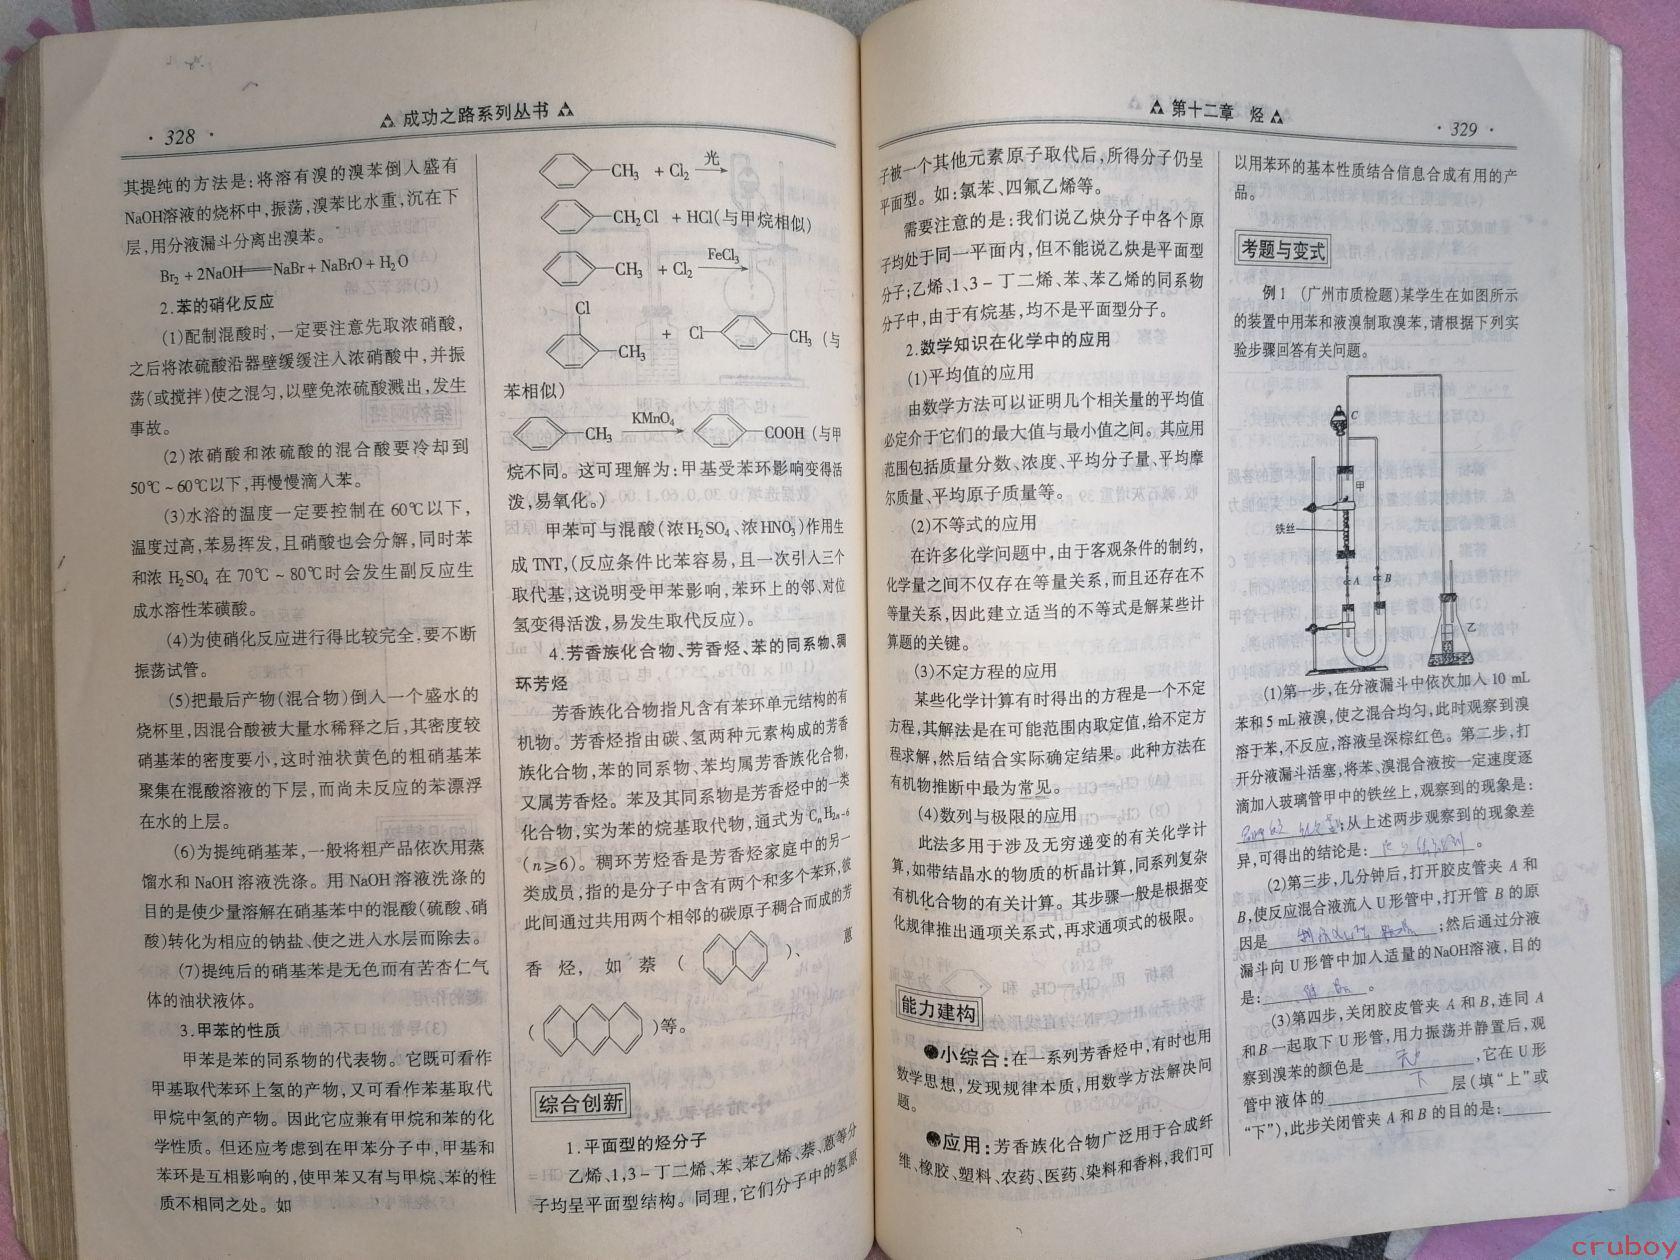 · 328 ·
成功之路系列丛书
其提纯的方法是:将溶有溴的溴苯倒入盛有
NaOH溶液的烧杯中,振荡,溴苯比水重,沉在下
层,用分液漏斗分离出溴苯。
Br₂ + 2NaOH══NaBr + NaBrO + H₂O
2.苯的硝化反应
(1)配制混酸时,一定要注意先取浓硝酸,
之后将浓硫酸沿器壁缓缓注入浓硝酸中,并振
荡(或搅拌)使之混匀,以壁免浓硫酸溅出,发生
事故。
(2)浓硝酸和浓硫酸的混合酸要冷却到
50℃~60℃以下,再慢慢滴入苯。
(3)水浴的温度一定要控制在60℃以下,
温度过高,苯易挥发,且硝酸也会分解,同时苯
和浓 H₂SO₄ 在 70℃~80℃时会发生副反应生
成水溶性苯磺酸。
(4)为使硝化反应进行得比较完全.要不断
振荡试管。
(5)把最后产物(混合物)倒入一个盛水的
烧杯里,因混合酸被大量水稀释之后,其密度较
硝基苯的密度要小,这时油状黄色的粗硝基苯
聚集在混酸溶液的下层,而尚未反应的苯漂浮
在水的上层。
(6)为提纯硝基苯,一般将粗产品依次用蒸
馏水和 NaOH 溶液洗涤。用 NaOH 溶液洗涤的
目的是使少量溶解在硝基苯中的混酸(硫酸、硝
酸)转化为相应的钠盐、使之进入水层而除去。
(7)提纯后的硝基苯是无色而有苦杏仁气
体的油状液体。
3.甲苯的性质
甲苯是苯的同系物的代表物。它既可看作
甲基取代苯环上氢的产物,又可看作苯基取代
甲烷中氢的产物。因此它应兼有甲烷和苯的化
学性质。但还应考虑到在甲苯分子中,甲基和
苯环是互相影响的,使甲苯又有与甲烷、苯的性
质不相同之处。如
—CH₃ + Cl₂ 光
—CH₂Cl + HCl(与甲烷相似)
—CH₃ + Cl₂ FeCl₃
Cl
—CH₃ + Cl— —CH₃ (与
苯相似)
—CH₃ KMnO₄ —COOH (与甲
烷不同。这可理解为:甲基受苯环影响变得活
泼,易氧化。)
甲苯可与混酸(浓H₂SO₄、浓HNO₃)作用生
成 TNT,(反应条件比苯容易,且一次引入三个
取代基,这说明受甲苯影响,苯环上的邻、对位
氢变得活泼,易发生取代反应)。
4.芳香族化合物、芳香烃、苯的同系物、稠
环芳烃
芳香族化合物指凡含有苯环单元结构的有
机物。芳香烃指由碳、氢两种元素构成的芳香
族化合物,苯的同系物、苯均属芳香族化合物,
又属芳香烃。苯及其同系物是芳香烃中的一类
化合物,实为苯的烷基取代物,通式为 CₙH₂ₙ₋₆
(n≥6)。稠环芳烃香是芳香烃家庭中的另一
类成员,指的是分子中含有两个和多个苯环,彼
此间通过共用两个相邻的碳原子稠合而成的芳
香烃,如萘( )、蒽
( )等。
综合创新
1.平面型的烃分子
乙烯、1,3-丁二烯、苯、苯乙烯、萘、蒽等分
子均呈平面型结构。同理,它们分子中的氢原
第十二章 烃
· 329 ·
子被一个其他元素原子取代后,所得分子仍呈
平面型。如:氯苯、四氟乙烯等。
需要注意的是:我们说乙炔分子中各个原
子均处于同一平面内,但不能说乙炔是平面型
分子;乙烯、1、3-丁二烯、苯、苯乙烯的同系物
分子中,由于有烷基,均不是平面型分子。
2.数学知识在化学中的应用
(1)平均值的应用
由数学方法可以证明几个相关量的平均值
必定介于它们的最大值与最小值之间。其应用
范围包括质量分数、浓度、平均分子量、平均摩
尔质量、平均原子质量等。
(2)不等式的应用
在许多化学问题中,由于客观条件的制约,
化学量之间不仅存在等量关系,而且还存在不
等量关系,因此建立适当的不等式是解某些计
算题的关键。
(3)不定方程的应用
某些化学计算有时得出的方程是一个不定
方程,其解法是在可能范围内取定值,给不定方
程求解,然后结合实际确定结果。此种方法在
有机物推断中最为常见。
(4)数列与极限的应用
此法多用于涉及无穷递变的有关化学计
算,如带结晶水的物质的析晶计算,同系列复杂
有机化合物的有关计算。其步骤一般是根据变
化规律推出通项关系式,再求通项式的极限。
能力建构
●小综合:在一系列芳香烃中,有时也用
数学思想,发现规律本质,用数学方法解决问
题。
●应用:芳香族化合物广泛用于合成纤
维、橡胶、塑料、农药、医药、染料和香料,我们可
以用苯环的基本性质结合信息合成有用的产
品。
考题与变式
例1 (广州市质检题)某学生在如图所示
的装置中用苯和液溴制取溴苯,请根据下列实
验步骤回答有关问题。
C
甲
铁丝
A
B
乙
(1)第一步,在分液漏斗中依次加入 10 mL
苯和 5 mL液溴,使之混合均匀,此时观察到溴
溶于苯,不反应,溶液呈深棕红色。第二步,打
开分液漏斗活塞,将苯、溴混合液按一定速度逐
滴加入玻璃管甲中的铁丝上,观察到的现象是:
;从上述两步观察到的现象差
异,可得出的结论是: 。
(2)第三步,几分钟后,打开胶皮管夹 A 和
B,使反应混合液流入U形管中,打开管 B 的原
因是 ;然后通过分液
漏斗向 U 形管中加入适量的NaOH溶液,目的
是: 。
(3)第四步,关闭胶皮管夹 A 和 B,连同 A
和 B 一起取下 U 形管,用力振荡并静置后,观
察到溴苯的颜色是 无 ,它在 U 形
管中液体的 下 层(填“上”或
“下”),此步关闭管夹 A 和 B 的目的是:
cruboy